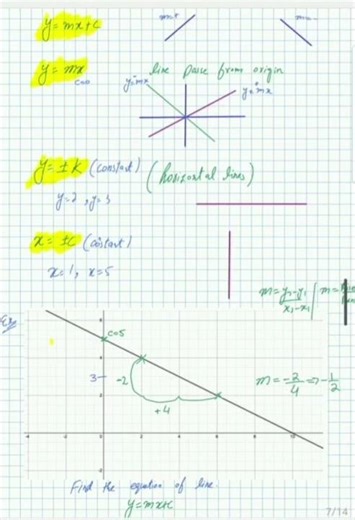 y=mx+c
m+
m-
y=mx
line passe from origin
y=mx
y=mx
y= ±k (constant) (horizontal lines)
y=2, y=3
x= ±c (constant)
x=1, x=5
m=y₂-y₁/x₂-x₁ | m=
Ex:
c=5
3
-2
+4
m=-2/4 => -1/2
Find the equation of line.
y=mx+c
7/14